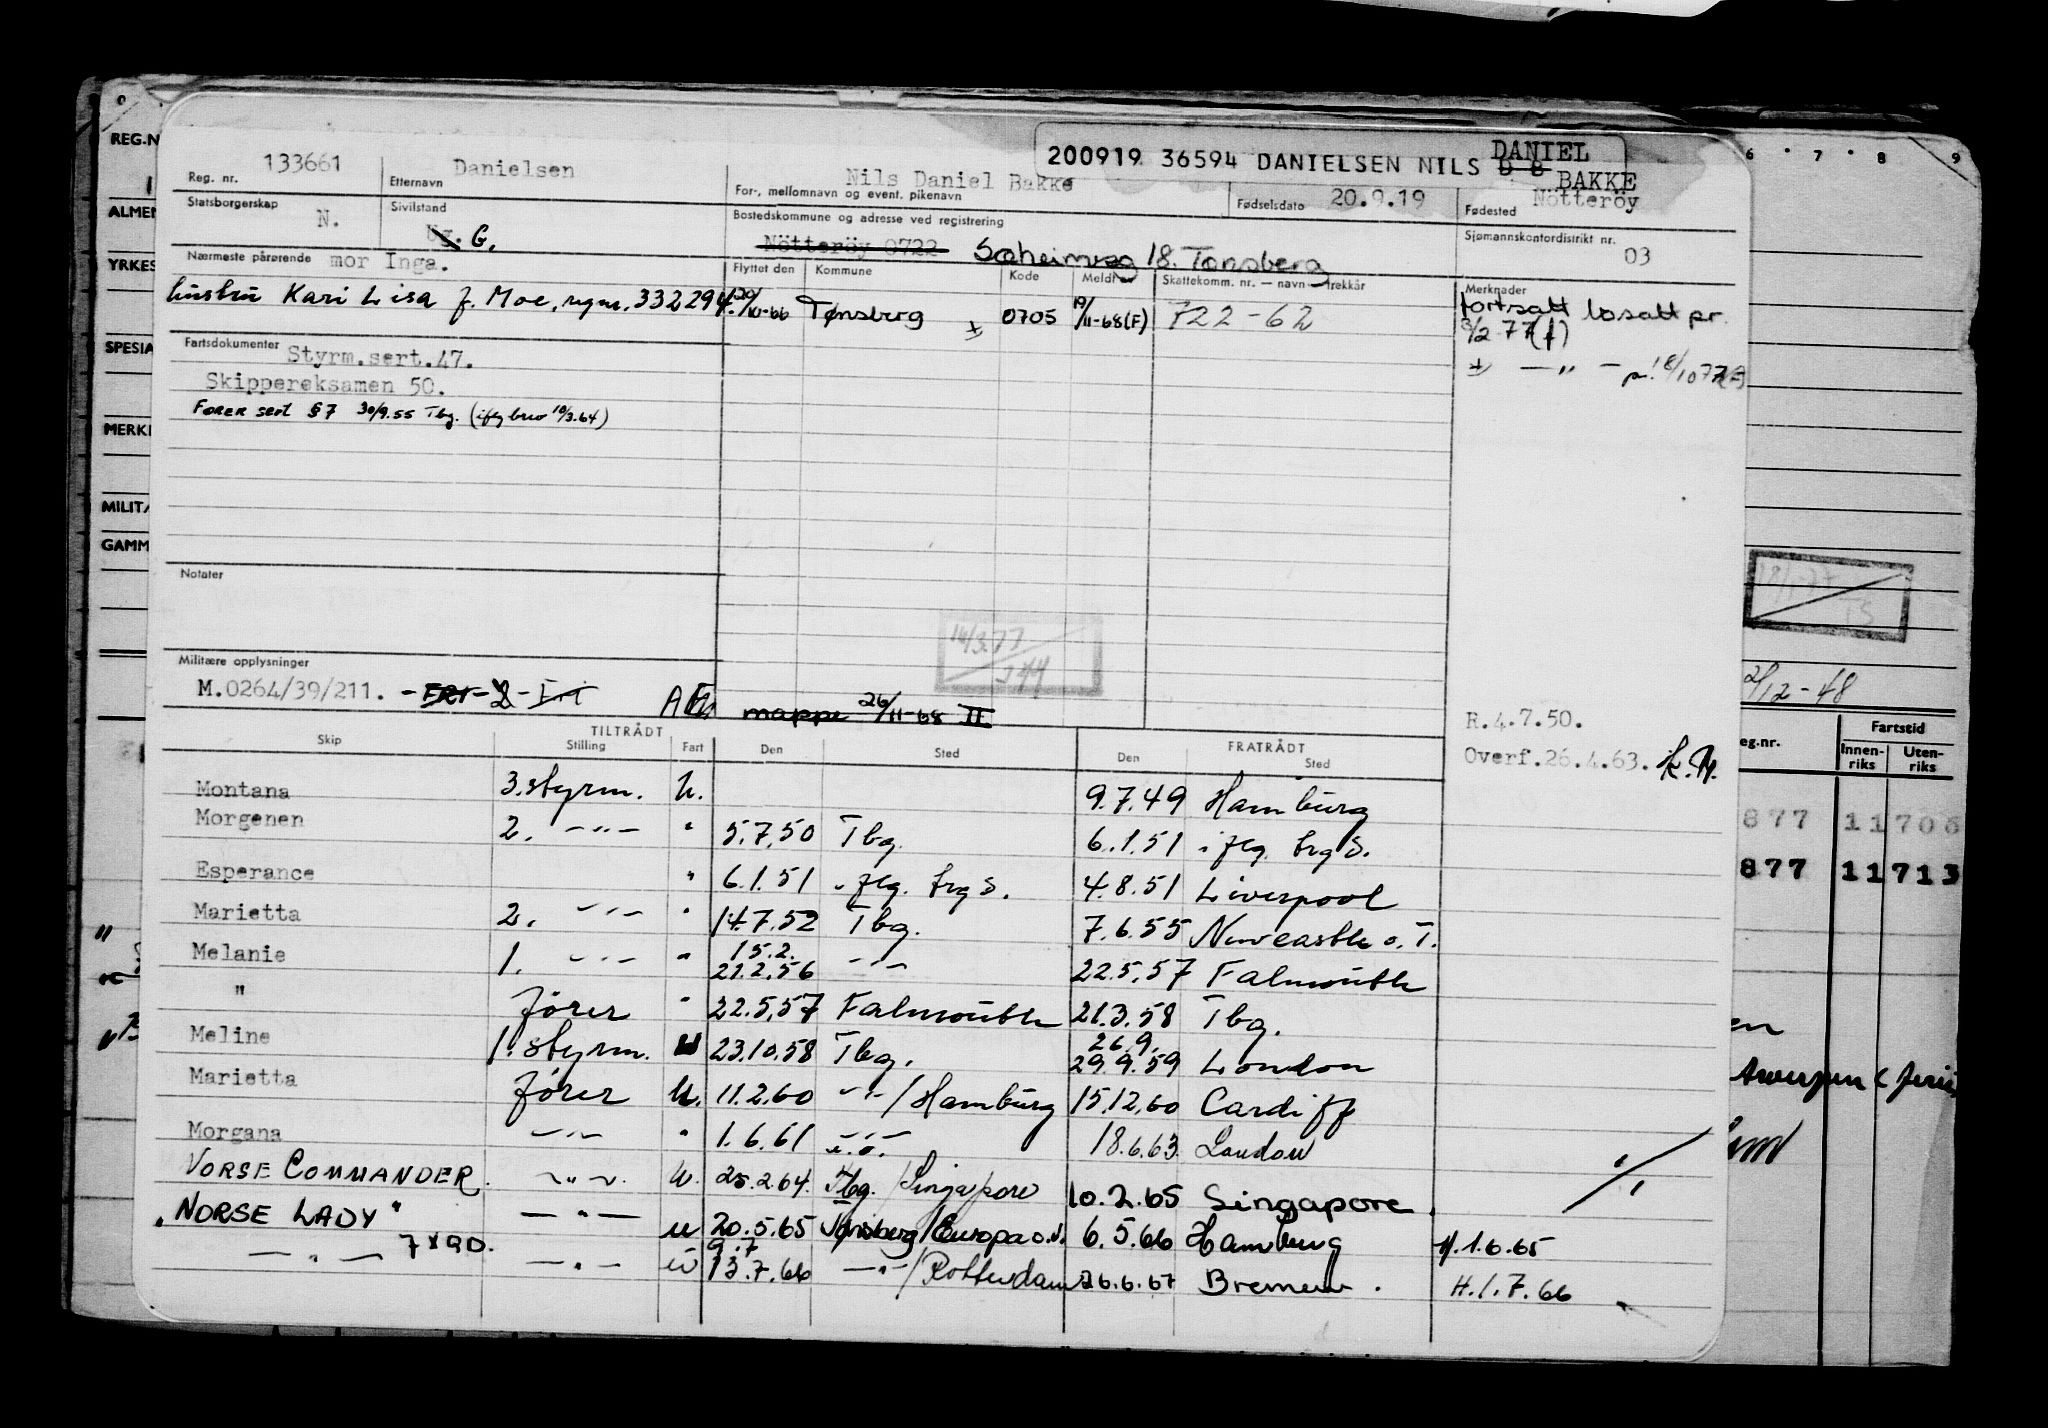 200919 36594 DANIELSEN NILS D B DANIEL BAKKE
Reg. nr. 133661 Etternavn Danielsen For-, mellomnavn og event. pikenavn Nils Daniel Bakke Fødselsdato 20.9.19 Fødested Nötteröy
Statsborgerskap N. Sivilstand Ug. G. Bostedskommune og adresse ved registrering Nötteröy 0722 Saheimveg 18. Tønsberg Sjømannskontordistrikt nr. 03
Nærmeste pårørende mor Inga.
hustru Kari Lisa f. Moe, regnr. 332294.
Flyttet den Kommune Kode Meldt Skattekomm. nr. — navn — trekkår Merknader
Tønsberg 0705 19/11-68(F) 722-62
fortsatt løsatt pr.
3/2 77(f)
Fartsdokumenter Styrm.sert.47.
Skippereksamen 50.
Fører sert §7 30/9.55 Tbg. (ifg brev 10/3.64)
Notater
14/3.77
Militære opplysninger
M.0264/39/211.
mappe 26/11-68 II
R.4.7.50.
Overf.26.4.63.
TILTRÅDT FRATRÅDT
Skip Stilling Fart Den Sted Den Sted
Montana 3.styrm. U. 9.7.49 Hamburg
Morgenen 2. —"— " 5.7.50 Tbg. 6.1.51
Esperance " 6.1.51 4.8.51 Liverpool
Marietta 2. —"— " 14.7.52 Tbg. 7.6.55 Newcastle o. T.
Melanie 1. —"— " 15.2. 21.2.56 —"— 22.5.57 Falmouth
" fører " 22.5.57 Falmouth 21.3.58 Tbg.
Meline 1.styrm. U 23.10.58 Tbg. 26.9. 29.9.59 London
Marietta fører U. 11.2.60 —"—/Hamburg 15.12.60 Cardiff
Morgana —"— " 1.6.61 —"— 18.6.63. London
NORSE COMMANDER. —"— U. 25.2.64. Tbg./Singapore 10.2.65 Singapore.
"NORSE LADY" —"— U 20.5.65 Tønsberg/Europa 6.5.66 Hamburg H.1.6.65
—"— 7YQD. —"— U 9.7 13.7.66 —"—/Rotterdam 26.6.67 Bremen. H.1.7.66
REG.N
ALMEN
YRKES
SPESIA
MERKI
MILITÆ
GAMM
6 7 8 9
2/12-48
eg.nr. Fartstid
Innenriks Utenriks
877 11706
877 11713